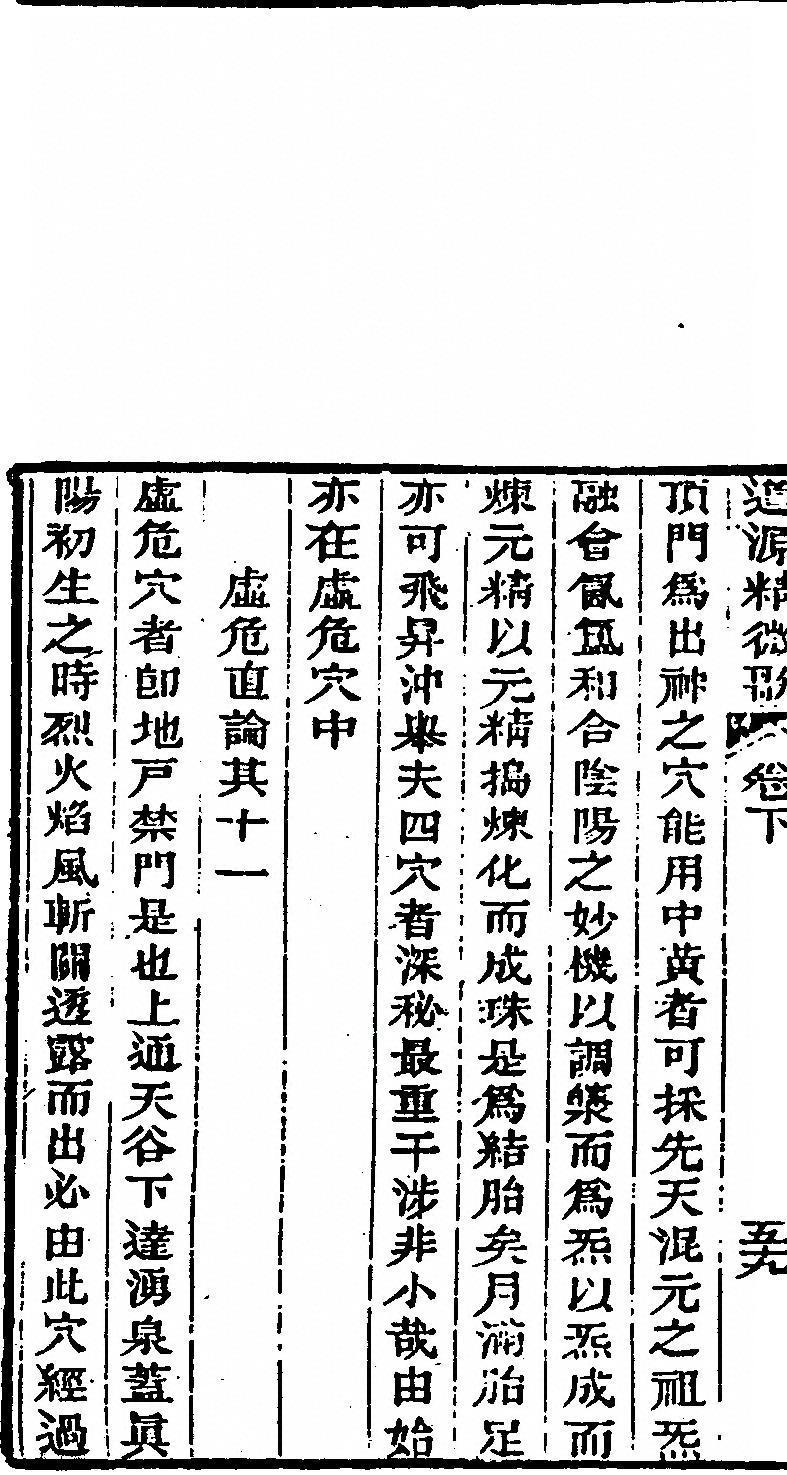 道源精微歌 卷下 五九
頂門爲出神之穴能用中黃者可採先天混元之祖炁
融會氤氳和合陰陽之妙機以調蒸而爲炁以炁成而
煉元精以元精搗煉化而成珠是爲結胎矣月滿胎足
亦可飛昇沖舉夫四穴者深秘最重干涉非小哉由始
亦在虛危穴中
虛危直論其十一
虛危穴者卽地戸禁門是也上通天谷下達湧泉蓋眞
陽初生之時烈火焰風斬關透露而出必由此穴經過